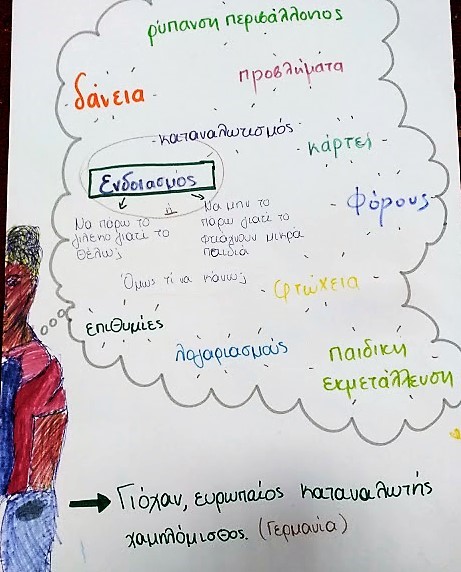 ρύπανση περιβάλλοντος
προβλήματα
δάνεια
καταναλωτισμός
κάρτες
Ενδοιασμός
ή
Να πάρω το
γιλέκο γιατί το
θέλω;
Να μην το
πάρω γιατί το
φτιάχνουν μικρά
παιδιά
Φόρους
Όμως τι να κάνω;
φτώχεια
επιθυμίες
λογαριασμούς
παιδική
εκμετάλλευση
Γιόχαν, ευρωπαίος καταναλωτής
χαμηλόμισθος. (Γερμανία)